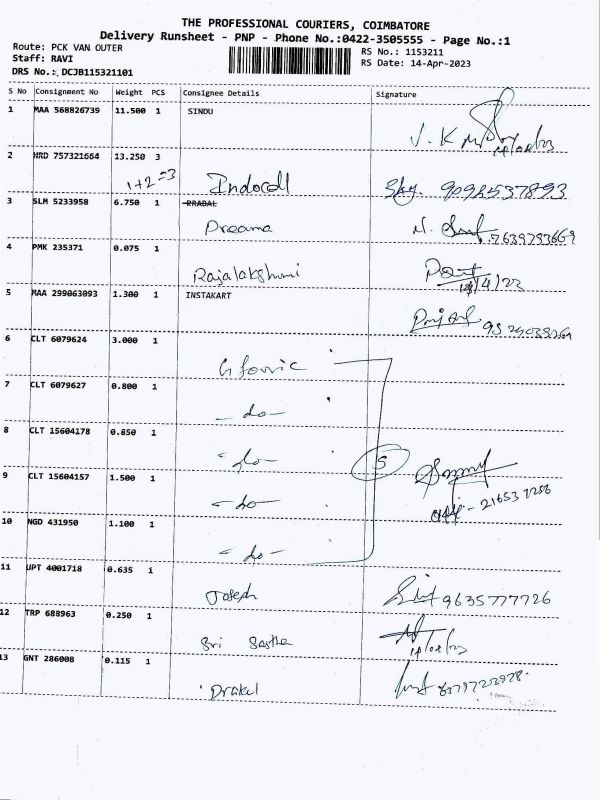 THE PROFESSIONAL COURIERS, COIMBATORE
Delivery Runsheet - PNP - Phone No.:0422-3505555 - Page No.:1
Route: PCK VAN OUTER
Staff: RAVI
DRS No.: DCJB115321101
RS No.: 1153211
RS Date: 14-Apr-2023
S No Consignment No Weight PCS Consignee Details Signature
1 MAA 568826739 11.500 1 SINDU
2 HRD 757321664 13.250 3
1+2=3 Indocoll 9092537893
3 SLM 5233958 6.750 1 PRABAL
Preama 7639793669
4 PMK 235371 0.075 1
Rajalakshmi
14/4/23
5 MAA 299063093 1.300 1 INSTAKART
6 CLT 6079624 3.000 1
7 CLT 6079627 0.800 1
-do-
8 CLT 15604178 0.850 1
-do-
5
9 CLT 15604157 1.500 1
-do-
10 NGD 431950 1.100 1
-do-
11 UPT 4001718 0.635 1
Joseph 9635777726
12 TRP 688963 0.250 1
Sri Sastha
13 GNT 286008 0.115 1